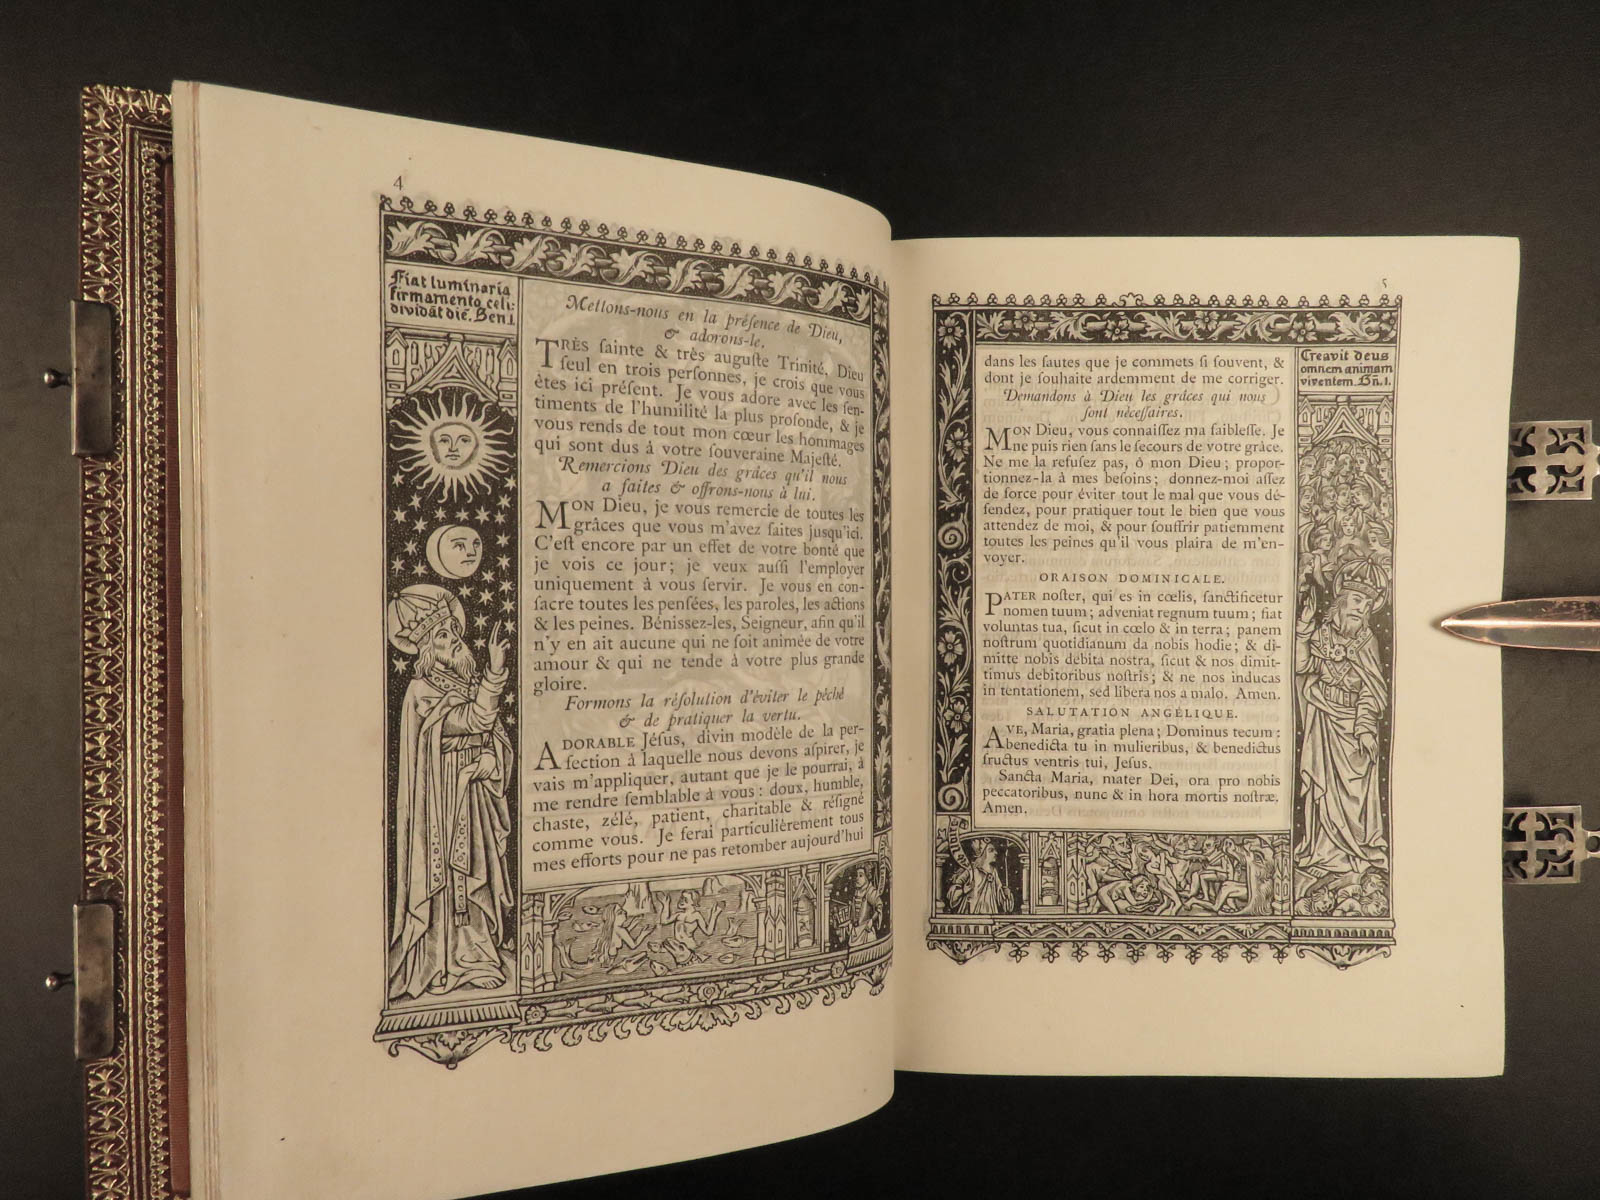 4
Fiat luminaria
firmamento celi:
dividāt diē. Gen. 1.
Mettons-nous en la préſence de Dieu,
& adorons-le.
TRÈS ſainte & très auguſte Trinité, Dieu
ſeul en trois perſonnes, je crois que vous
êtes ici préſent. Je vous adore avec les ſen-
timents de l'humilité la plus profonde, & je
vous rends de tout mon cœur les hommages
qui sont dus à votre ſouveraine Majeſté.
Remercions Dieu des grâces qu'il nous
a faites & offrons-nous à lui.
MON Dieu, je vous remercie de toutes les
grâces que vous m'avez faites juſqu'ici.
C'eſt encore par un effet de votre bonté que
je vois ce jour; je veux auſſi l'employer
uniquement à vous ſervir. Je vous en con-
ſacre toutes les penſées, les paroles, les actions
& les peines. Béniſſez-les, Seigneur, afin qu'il
n'y en ait aucune qui ne ſoit animée de votre
amour & qui ne tende à votre plus grande
gloire.
Formons la réſolution d'éviter le péché
& de pratiquer la vertu.
ADORABLE Jéſus, divin modèle de la per-
fection à laquelle nous devons aſpirer, je
vais m'appliquer, autant que je le pourrai, à
me rendre ſemblable à vous : doux, humble,
chaste, zélé, patient, charitable & réſigné
comme vous. Je ferai particulièrement tous
mes efforts pour ne pas retomber aujourd'hui
5
Creavit deus
omnem animam
viventem. Gñ. 1.
dans les fautes que je commets ſi ſouvent, &
dont je ſouhaite ardemment de me corriger.
Demandons à Dieu les grâces qui nous
ſont néceſſaires.
MON Dieu, vous connaiſſez ma faibleſſe. Je
ne puis rien ſans le ſecours de votre grâce.
Ne me la refuſez pas, ô mon Dieu; propor-
tionnez-la à mes beſoins; donnez-moi aſſez
de force pour éviter tout le mal que vous dé-
fendez, pour pratiquer tout le bien que vous
attendez de moi, & pour ſouffrir patiemment
toutes les peines qu'il vous plaira de m'en-
voyer.
ORAISON DOMINICALE.
PATER noſter, qui es in cœlis, ſanctificetur
nomen tuum; adveniat regnum tuum; fiat
voluntas tua, ſicut in cœlo & in terra; panem
noſtrum quotidianum da nobis hodie; & di-
mitte nobis debita nostra, ſicut & nos dimit-
timus debitoribus noſtris; & ne nos inducas
in tentationem, sed libera nos a malo. Amen.
SALUTATION ANGÉLIQUE.
AVE, Maria, gratia plena; Dominus tecum:
benedicta tu in mulieribus, & benedictus
fructus ventris tui, Jeſus.
Sancta Maria, mater Dei, ora pro nobis
peccatoribus, nunc & in hora mortis noſtræ.
Amen.